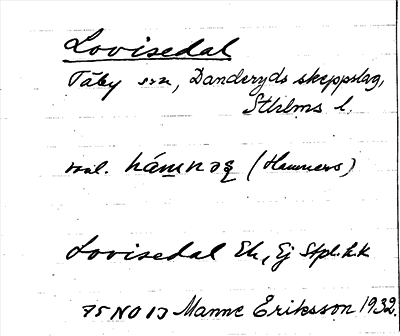 Lovisedal
Täby sn, Danderyds skeppslag,
Sthlms l.
vanl. hámnaʂ (Hamners)
Lovisedal Ek, Ej Stpl. k.k
75 NO 13 Manne Eriksson 1932.